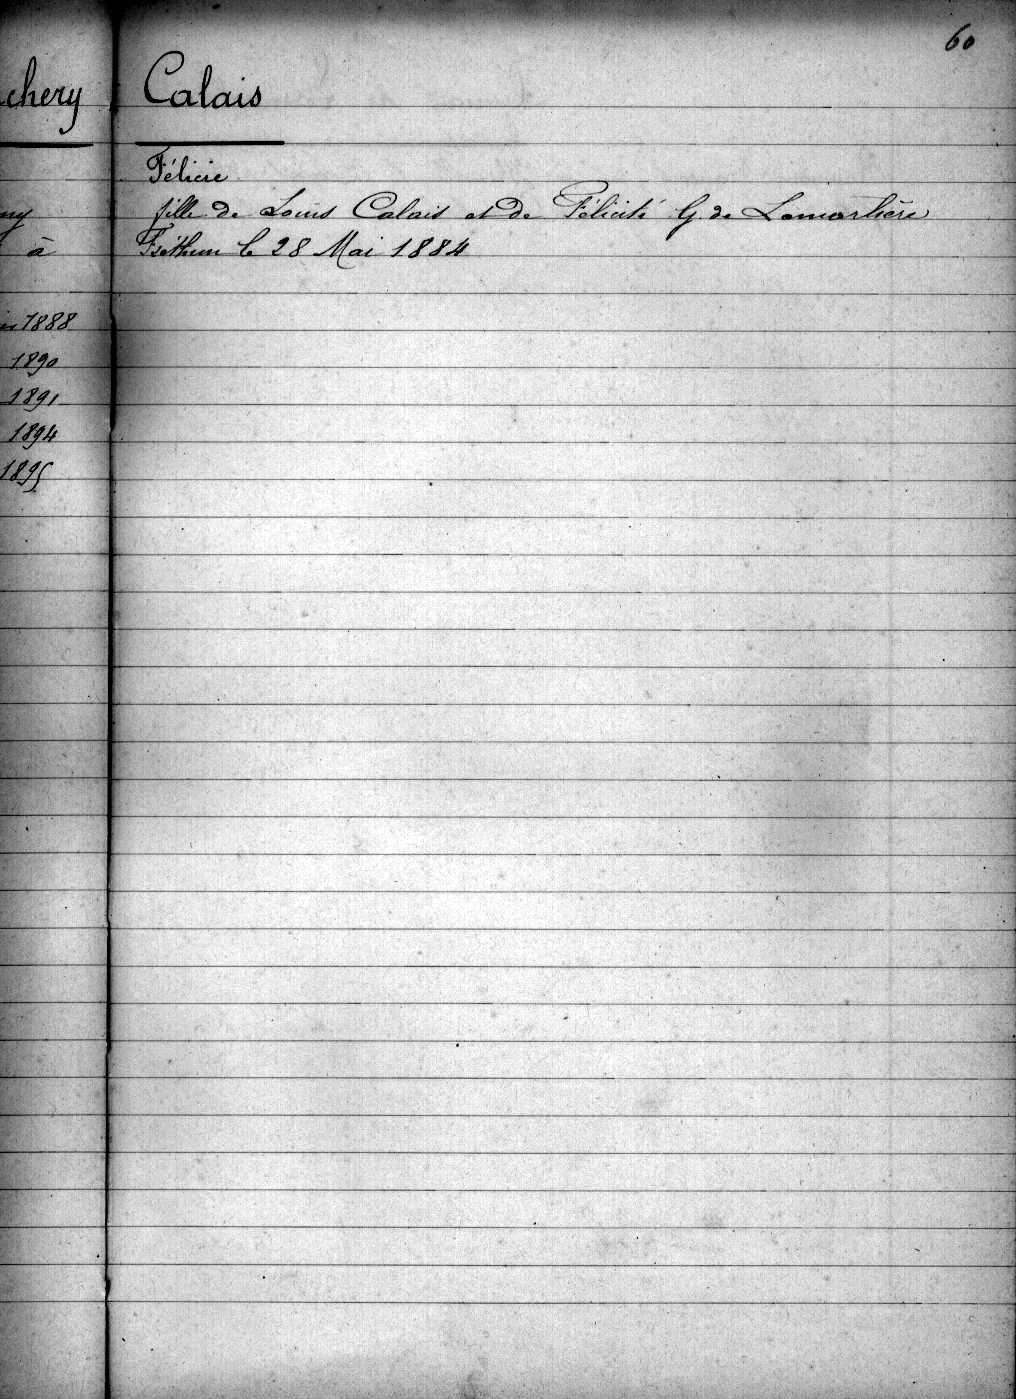 60
chery
Calais
Félicie
fille de Louis Calais et de Félicité G de Lamarlière
Fréthun le 28 Mai 1884
ny
à
1888
1890
1891
1894
1895